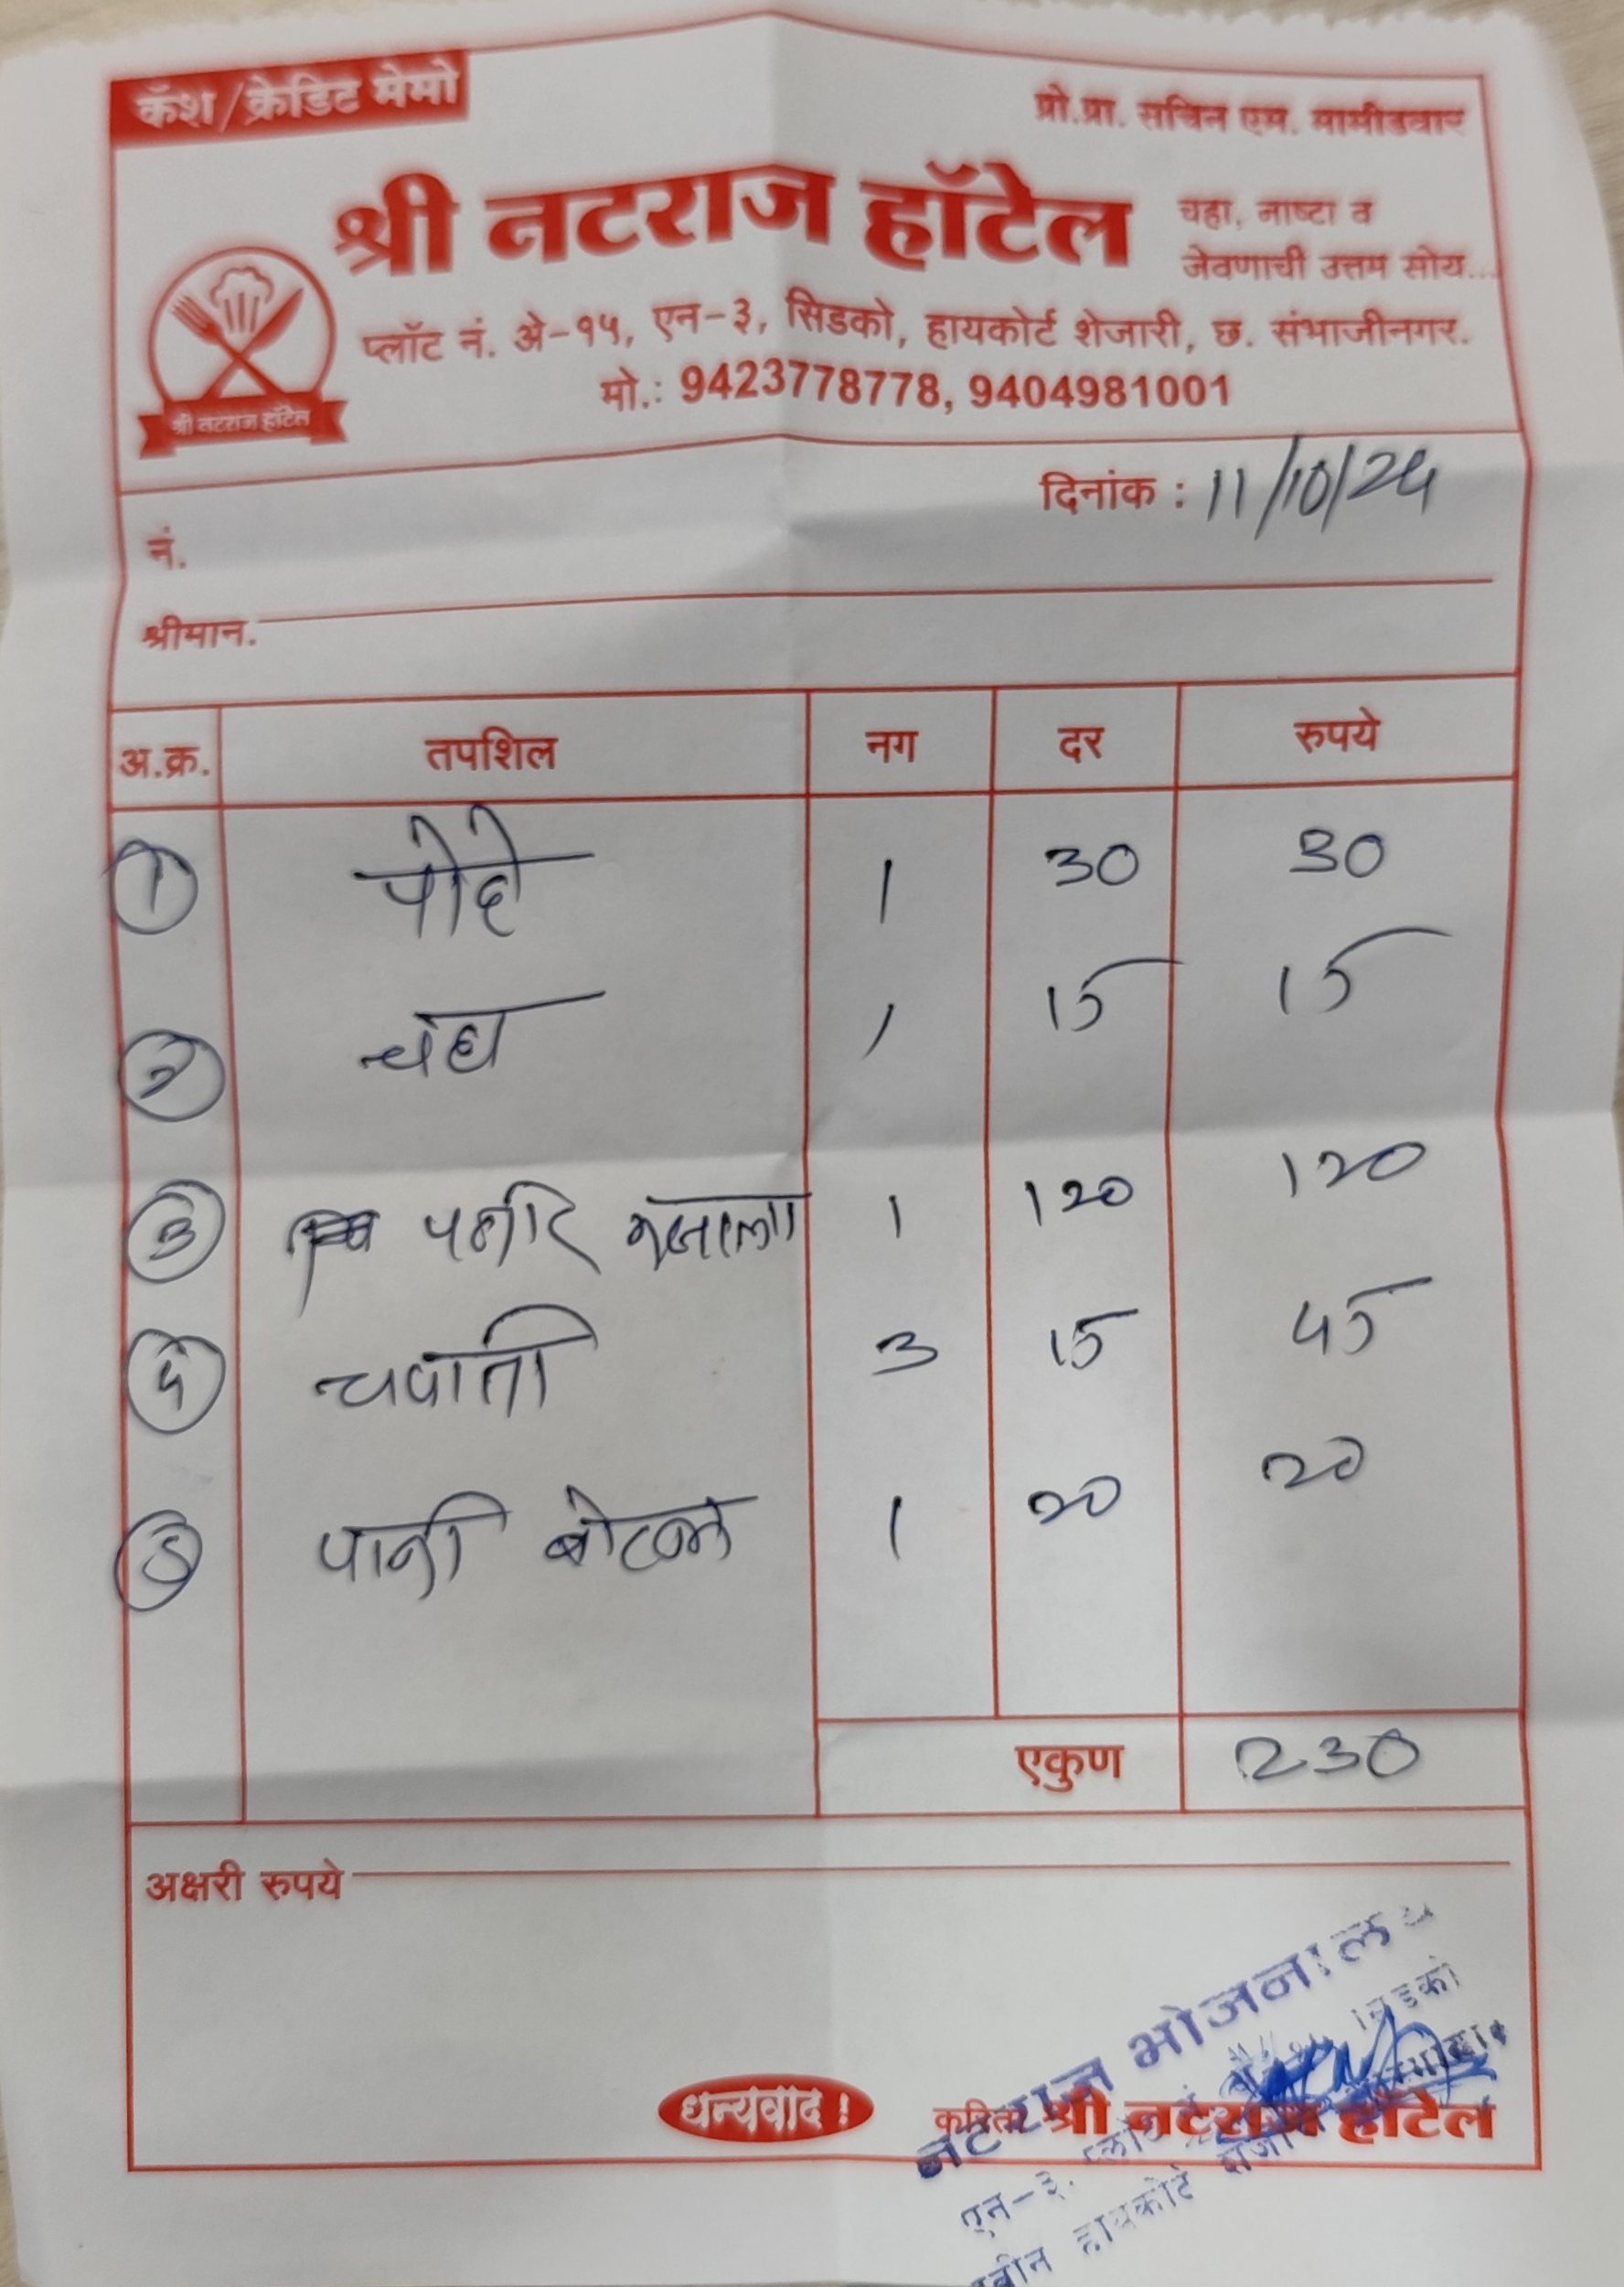 कॅश/क्रेडिट मेमो
प्रो.प्रा. सचिन एम. मामीडवार
श्री नटराज हॉटेल
चहा, नाष्टा व
जेवणाची उत्तम सोय...
श्री नटराज हॉटेल
प्लॉट नं. अे-१५, एन-३, सिडको, हायकोर्ट शेजारी, छ. संभाजीनगर.
मो.: 9423778778, 9404981001
दिनांक : 11/10/24
नं.
श्रीमान.
अ.क्र. तपशिल नग दर रुपये
1 पोहे 1 30 30
2 चहा 1 15 15
3 पनीर मसाला 1 120 120
4 चपाती 3 15 45
5 पानी बोटल 1 20 20
एकुण 230
अक्षरी रुपये
धन्यवाद !
करिता श्री नटराज हॉटेल
नटराज भोजनालय
एन-३, प्लॉट सिडको
नवीन हायकोर्ट